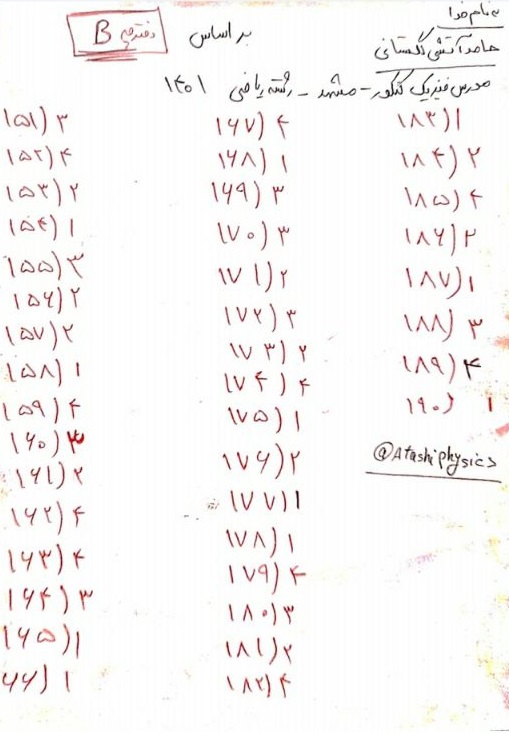 به نام خدا
حامد آتشی گلستانی
بر اساس
دفترچه B
مدرس فیزیک کنکور - مشهد - رشته ریاضی ۱۴۰۱
۱۵۱) ۳
۱۵۲) ۴
۱۵۳) ۲
۱۵۴) ۱
۱۵۵) ۳
۱۵۶) ۲
۱۵۷) ۲
۱۵۸) ۱
۱۵۹) ۴
۱۶۰) ۳
۱۶۱) ۲
۱۶۲) ۴
۱۶۳) ۴
۱۶۴) ۳
۱۶۵) ۱
۶۶) ۱
۱۶۷) ۴
۱۶۸) ۱
۱۶۹) ۳
۱۷۰) ۳
۱۷۱) ۲
۱۷۲) ۳
۱۷۳) ۲
۱۷۴) ۴
۱۷۵) ۱
۱۷۶) ۲
۱۷۷) ۱
۱۷۸) ۱
۱۷۹) ۴
۱۸۰) ۳
۱۸۱) ۲
۱۸۲) ۴
۱۸۳) ۱
۱۸۴) ۲
۱۸۵) ۴
۱۸۶) ۲
۱۸۷) ۱
۱۸۸) ۳
۱۸۹) ۴
۱۹۰) ۱
@Atashiphysics